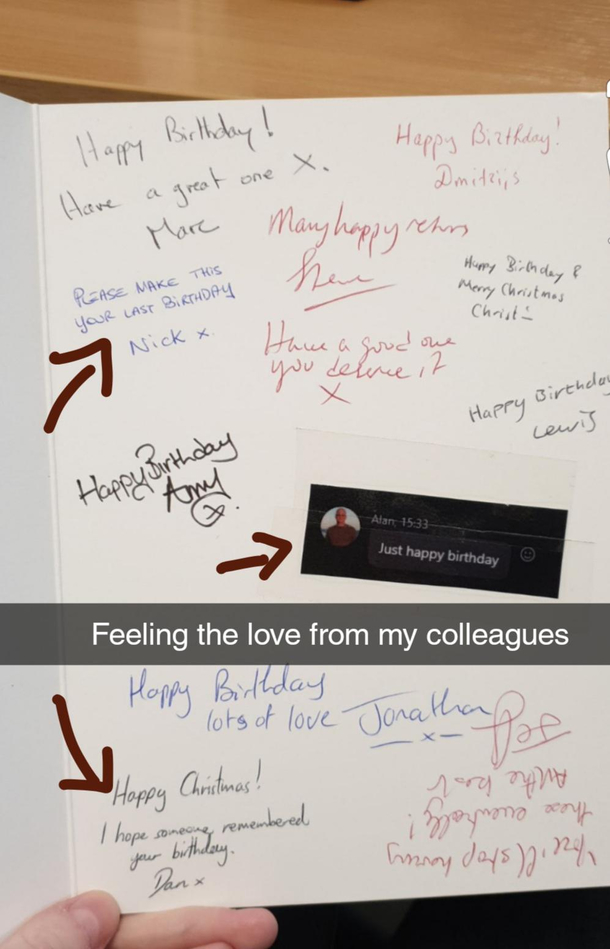 Happy Birthday!
Have a great one X.
Marc
Happy Birthday!
Dmitrijs
Many happy returns
Steve
PLEASE MAKE THIS
YOUR LAST BIRTHDAY
Nick x.
Happy Birthday &
Merry Christmas
Have a good one
you deserve it
X
Happy Birthday
Lewis
Happy Birthday
Amy
x.
Alan, 15:33
Just happy birthday
Feeling the love from my colleagues
Happy Birthday
lots of love Jonathan
x
Happy Christmas!
I hope someone remembered
your birthday.
Dan x
You'll stop having
these eventually!
All the best
Jeff